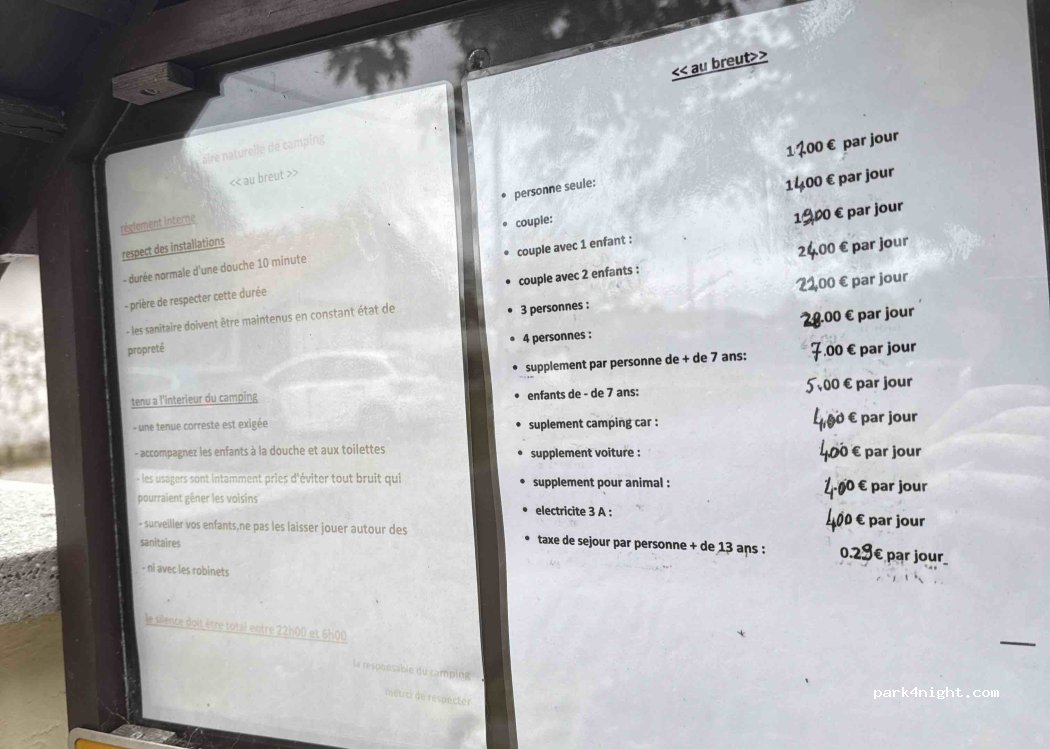 aire naturelle de camping
<< au breut >>
réglement interne
respect des installations
- durée normale d'une douche 10 minute
- prière de respecter cette durée
- les sanitaire doivent être maintenus en constant état de
propreté
tenu a l'interieur du camping
- une tenue correste est exigée
- accompagnez les enfants à la douche et aux toilettes
- les usagers sont intamment pries d'éviter tout bruit qui
pourraient gêner les voisins
- surveiller vos enfants,ne pas les laisser jouer autour des
sanitaires
- ni avec les robinets
le silence doit être total entre 22h00 et 6h00
la responsable du camping
merci de respecter
<< au breut>>
• personne seule: € par jour
• couple: 14,00 € par jour
• couple avec 1 enfant : € par jour
• couple avec 2 enfants : 24,00 € par jour
• 3 personnes : € par jour
• 4 personnes : .00 € par jour
• supplement par personne de + de 7 ans: 7.00 € par jour
• enfants de - de 7 ans: 5,00 € par jour
• suplement camping car : 4,00 € par jour
• supplement voiture : 4,00 € par jour
• supplement pour animal : € par jour
• electricite 3 A : 4,00 € par jour
• taxe de sejour par personne + de 13 ans : 0.29€ par jour
park4night.com